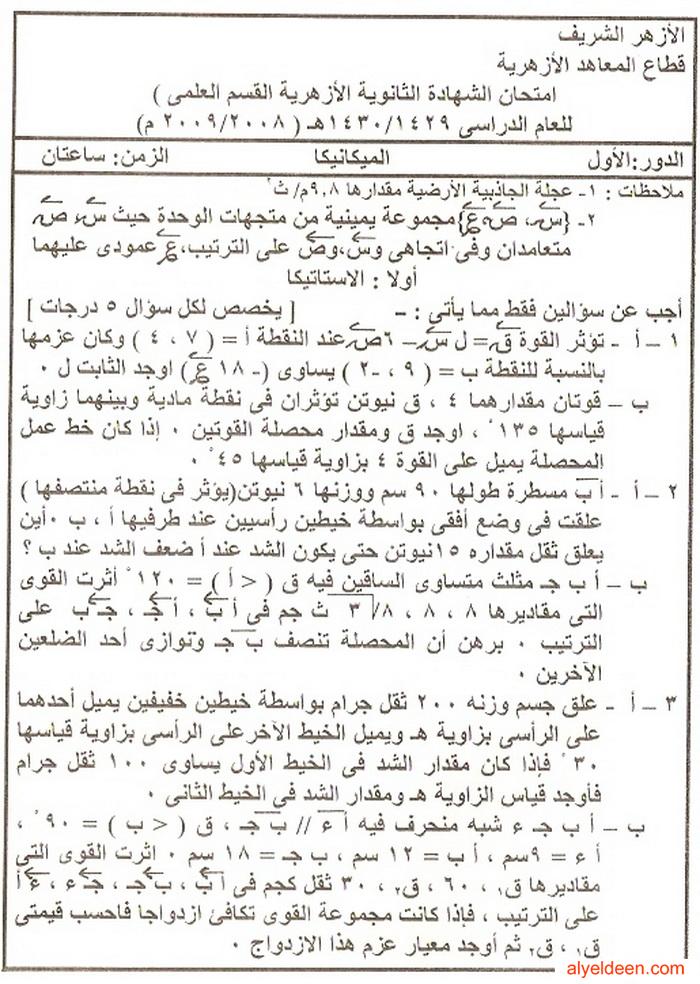 الأزهر الشريف
قطاع المعاهد الأزهرية
امتحان الشهادة الثانوية الأزهرية القسم العلمى )
للعام الدراسى ١٤٣٠/١٤٢٩هـ ( ٢٠٠٩/٢٠٠٨ م)
الدور:الأول الميكانيكا الزمن: ساعتان
ملاحظات : ١- عجلة الجاذبية الأرضية مقدارها ٩,٨م/ث٢
٢- {س، ص، ع} مجموعة يمينية من متجهات الوحدة حيث س، ص
متعامدان وفى اتجاهى وس، وص على الترتيب، ع عمودى عليهما
أولا : الاستاتيكا
أجب عن سؤالين فقط مما يأتى : - [ يخصص لكل سؤال ٥ درجات ]
١ – أ - تؤثر القوة ق = ل س – ٦ص عند النقطة أ = ( ٧ ، ٤ ) وكان عزمها
بالنسبة للنقطة ب = ( ٩ ، -٢ ) يساوى (- ١٨ ع) اوجد الثابت ل ٠
ب – قوتان مقدارهما ٤ ، ق نيوتن تؤثران فى نقطة مادية وبينهما زاوية
قياسها ١٣٥° ، اوجد ق ومقدار محصلة القوتين ٠ إذا كان خط عمل
المحصلة يميل على القوة ٤ بزاوية قياسها ٤٥° ٠
٢ – أ - أ ب مسطرة طولها ٩٠ سم ووزنها ٦ نيوتن(يؤثر فى نقطة منتصفها )
علقت فى وضع أفقى بواسطة خيطين رأسيين عند طرفيها أ ، ب ٠أين
يعلق ثقل مقداره ١٥نيوتن حتى يكون الشد عند أ ضعف الشد عند ب ؟
ب – أ ب جـ مثلث متساوى الساقين فيه ق ( < أ ) = ١٢٠° أثرت القوى
التى مقاديرها ٨ ، ٨ ، ٨√٣ ث جم فى أ ب ، أ جـ ، جـ ب على
الترتيب ٠ برهن أن المحصلة تنصف ب جـ وتوازى أحد الضلعين
الآخرين ٠
٣ – أ - علق جسم وزنه ٢٠٠ ثقل جرام بواسطة خيطين خفيفين يميل أحدهما
على الرأسى بزاوية هـ ويميل الخيط الآخرعلى الرأسى بزاوية قياسها
٣٠° فإذا كان مقدار الشد فى الخيط الأول يساوى ١٠٠ ثقل جرام
فأوجد قياس الزاوية هـ ومقدار الشد فى الخيط الثانى ٠
ب – أ ب جـ ء شبه منحرف فيه أ ء // ب جـ ، ق ( < ب ) = ٩٠° ،
أ ء = ٩سم ، أ ب = ١٢ سم ، ب جـ = ١٨ سم ٠ اثرت القوى التى
مقاديرها ق١ ، ٦٠ ، ق٢ ، ٣٠ ثقل كجم فى أ ب ، ب جـ ، جـ ء ، ء أ
على الترتيب ، فإذا كانت مجموعة القوى تكافئ ازدواجا فاحسب قيمتى
ق١ ، ق٢ ثم أوجد معيار عزم هذا الازدواج ٠
alyeldeen.com